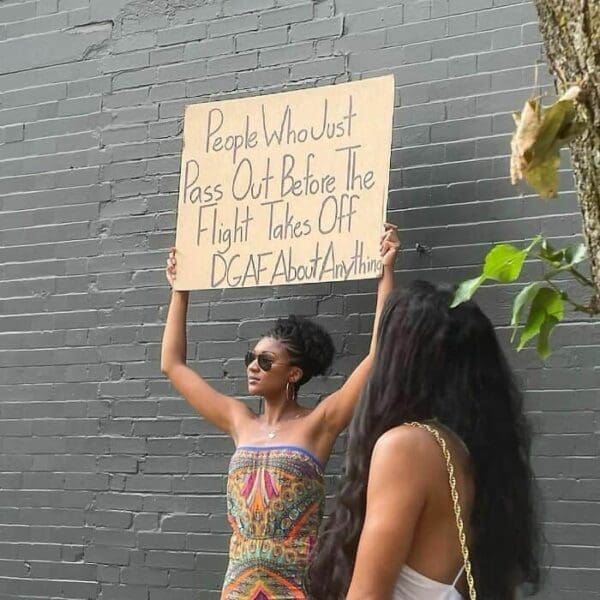 People Who Just
Pass Out Before The
Flight Takes Off
DGAF About Anything